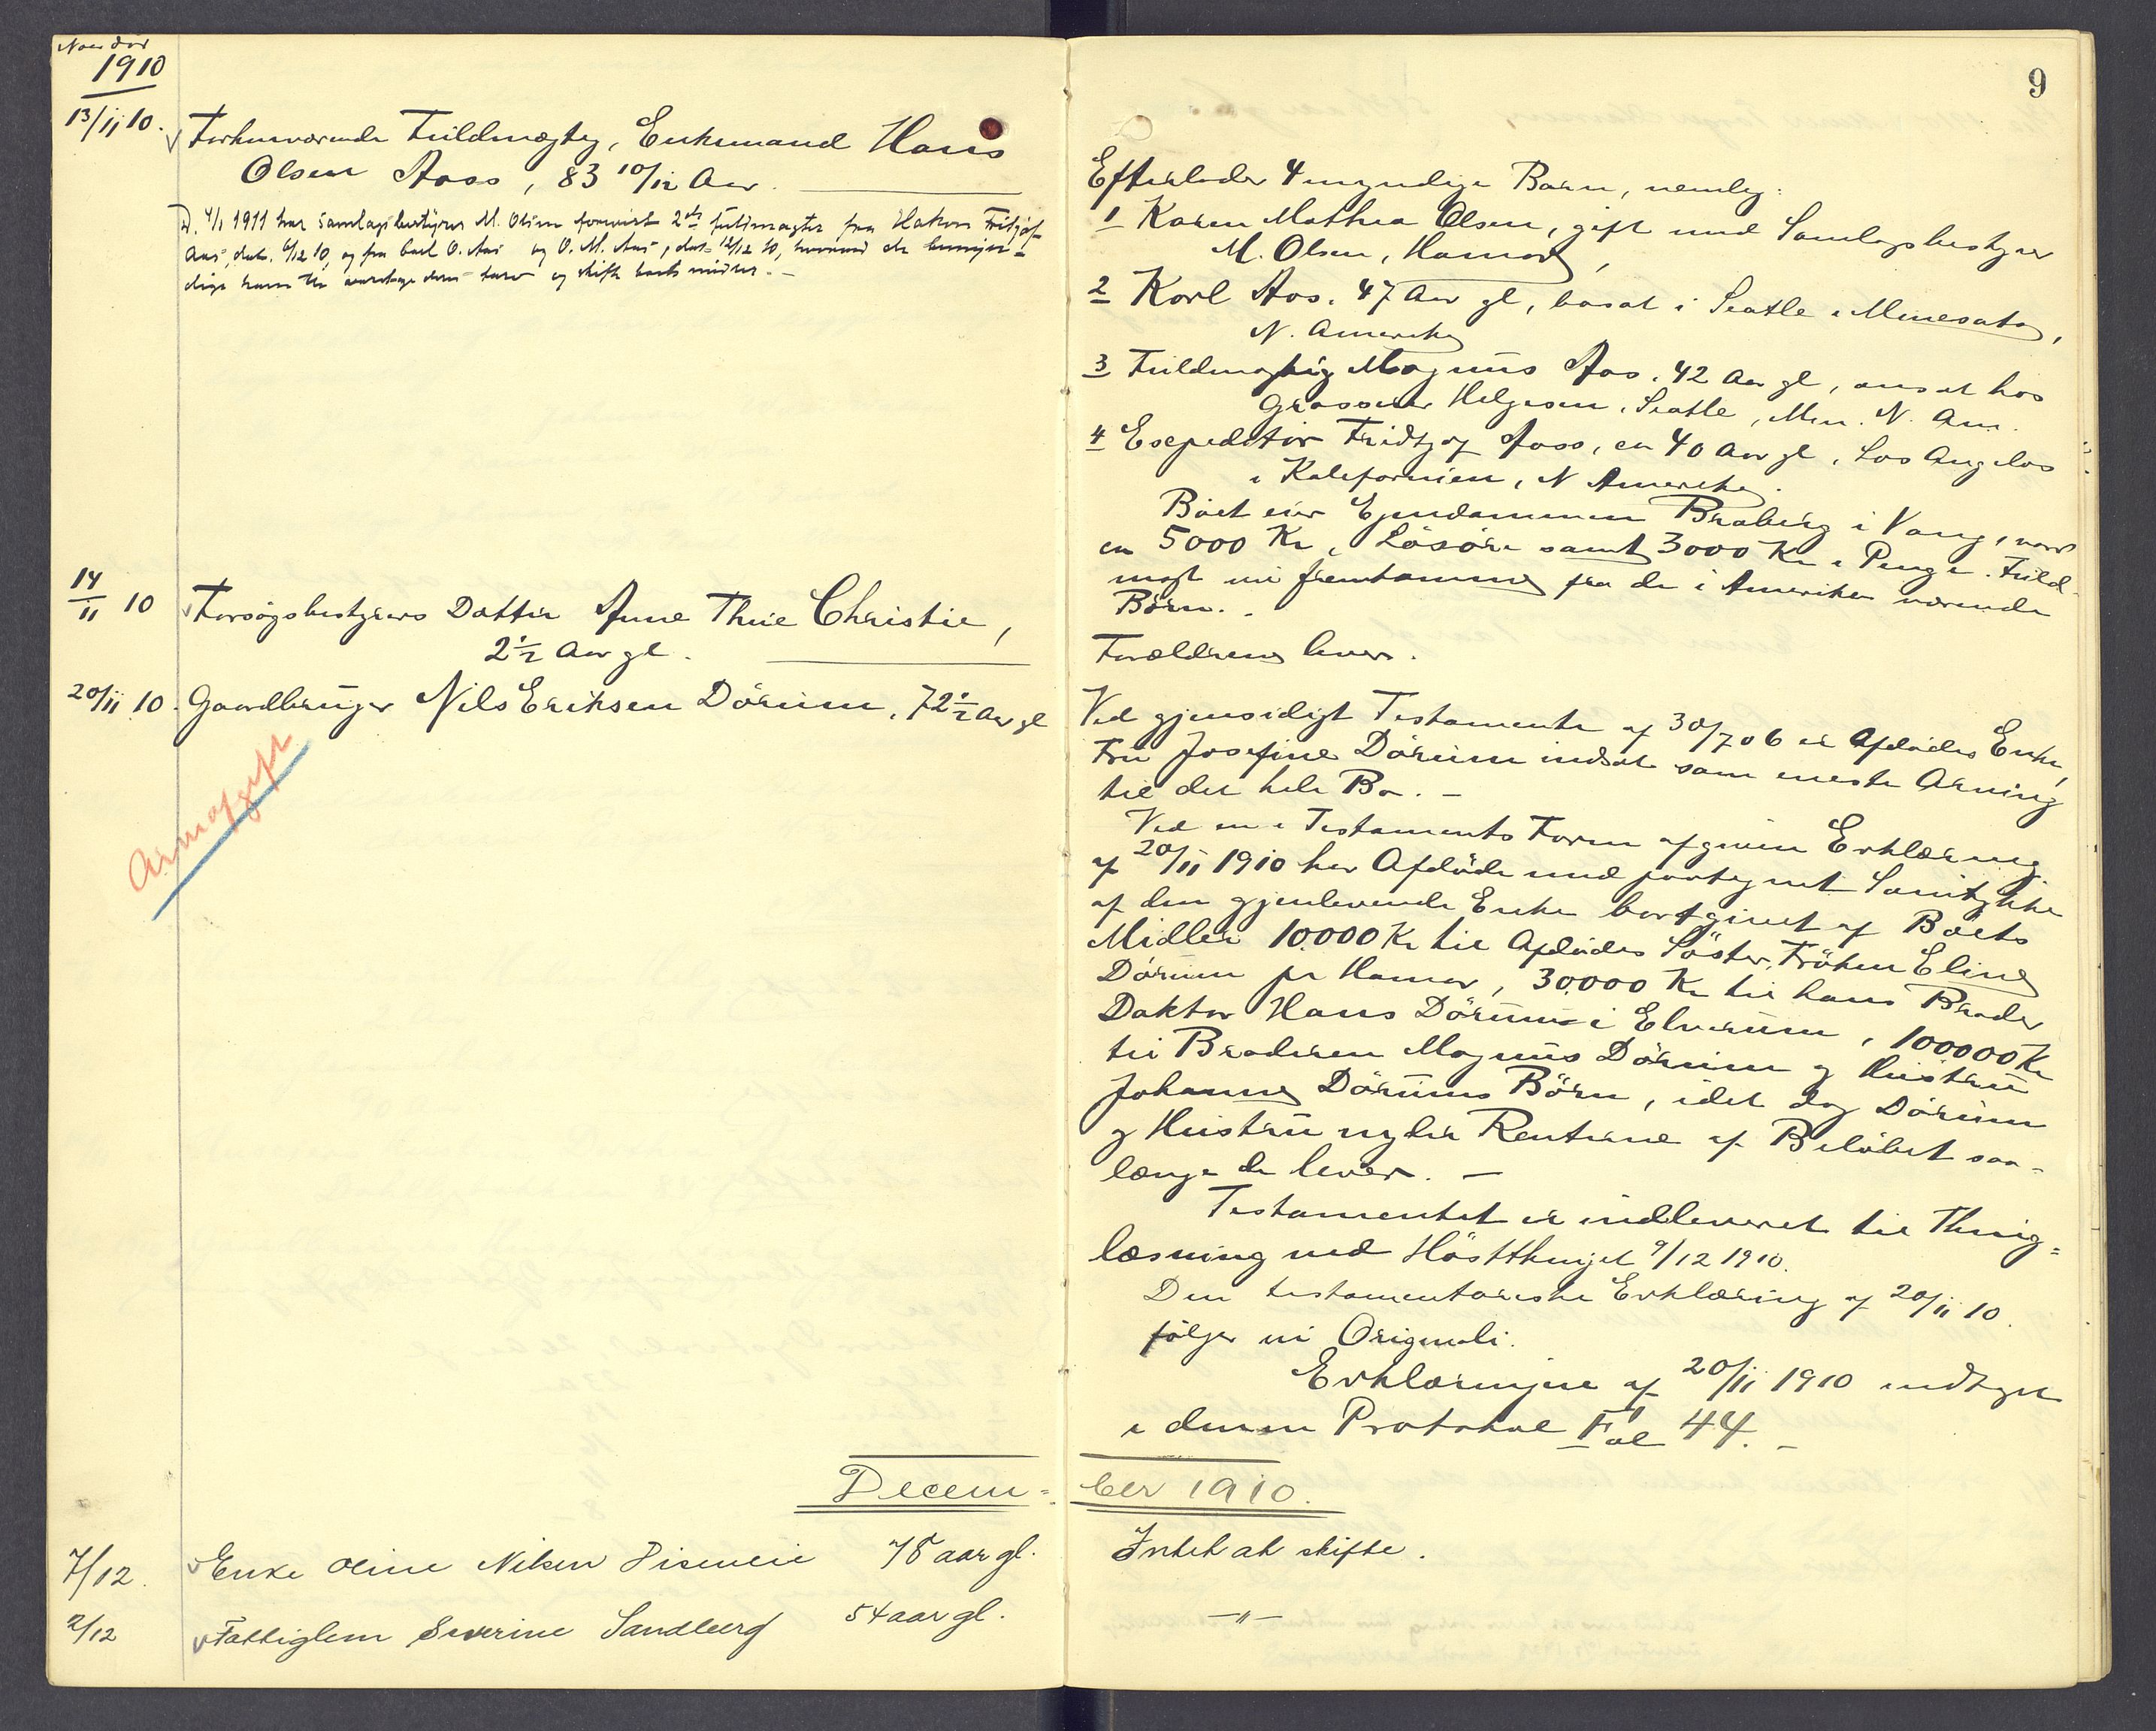 1910
13/11 10. Forhenværende Fuldmægtig, Enkemand Hans
Olsen Aass, 83 10/12 Aar.
D. 4/1 1911 har samlagsbestyrer M. Olsen forevist 2de fuldmagter fra Hakon Fritjof
Aas, dat. 6/12 10, og fra Carl O. Aas og O. M. Aas, dat. 12/12 10, hvorved de bemyn-
diger ham til varetage deres tarv og skifte boets midler. -
14/11 10 Forsøgsbestyrers Datter Anne Thrie Christie,
2 1/2 Aar gl.
20/11 10. Gaardbruger Nils Eriksen Dörum, 72 1/2 Aar gl
Arveafgift
Decem-
7/12. Enke Oline Nilsen Diseneie 78 aar gl.
2/12 Fattiglem Severine Sandberg 54 aar gl.
9
Efterlader 4 myndige Barn, nemlig:
1 Karen Mathea Olsen, gift med Samlagsbestyrer
M. Olsen, Hamar,
2 Karl Aas, 47 Aar gl, bosat i Seatle i Minesata,
N. Amerika
3 Fuldmægtig Magnus Aas, 42 Aar gl, ansat hos
Grosserer Helgesen, Seatle, Min. N. Am.
4 Expeditör Fridtjof Aass, ca 40 Aar gl, Los Angelos
i Kalifornien, N Amerika.
Boet eier Ejendommen Braberg i Vang, værd
ca 5000 Kr, Lösöre samt 3000 Kr i Penge. Fuld-
magt vil fremkomme fra de i Amerika værende
Börn.
Forældrene lever.
Ved gjensidigt Testamente af 30/7 06 er Afdödes Enke,
Fru Josefine Dörum indsat som eneste Arving
til det hele Bo. -
Ved en i Testaments Form afgiven Erklæring
af 20/11 1910 har Afdöde med paategnet Samtykke
af den gjenlevende Enke bortgivet af Boets
Midler 10.000 Kr til Afdödes Söster, Fröken Eline
Dörum pr Hamar, 30.000 Kr til hans Broder
Doktor Hans Dörum i Elverum, 100000 Kr
til Broderen Magnus Dörum og Hustru
Johanne Dörums Börn, idet dog Dörum
og Hustru nyder Renterne af Belöbet saa-
længe de lever. -
Testamentet er indleveret til Thing-
læsning ved Höstthinget 9/12 1910.
Den testamentariske Erklæring af 20/11 10.
fölger in Originali.
Erklæringen af 20/11 1910 indtaget
i denne Protokol Fol 44. -
ber 1910.
Intet at skifte.
- " -